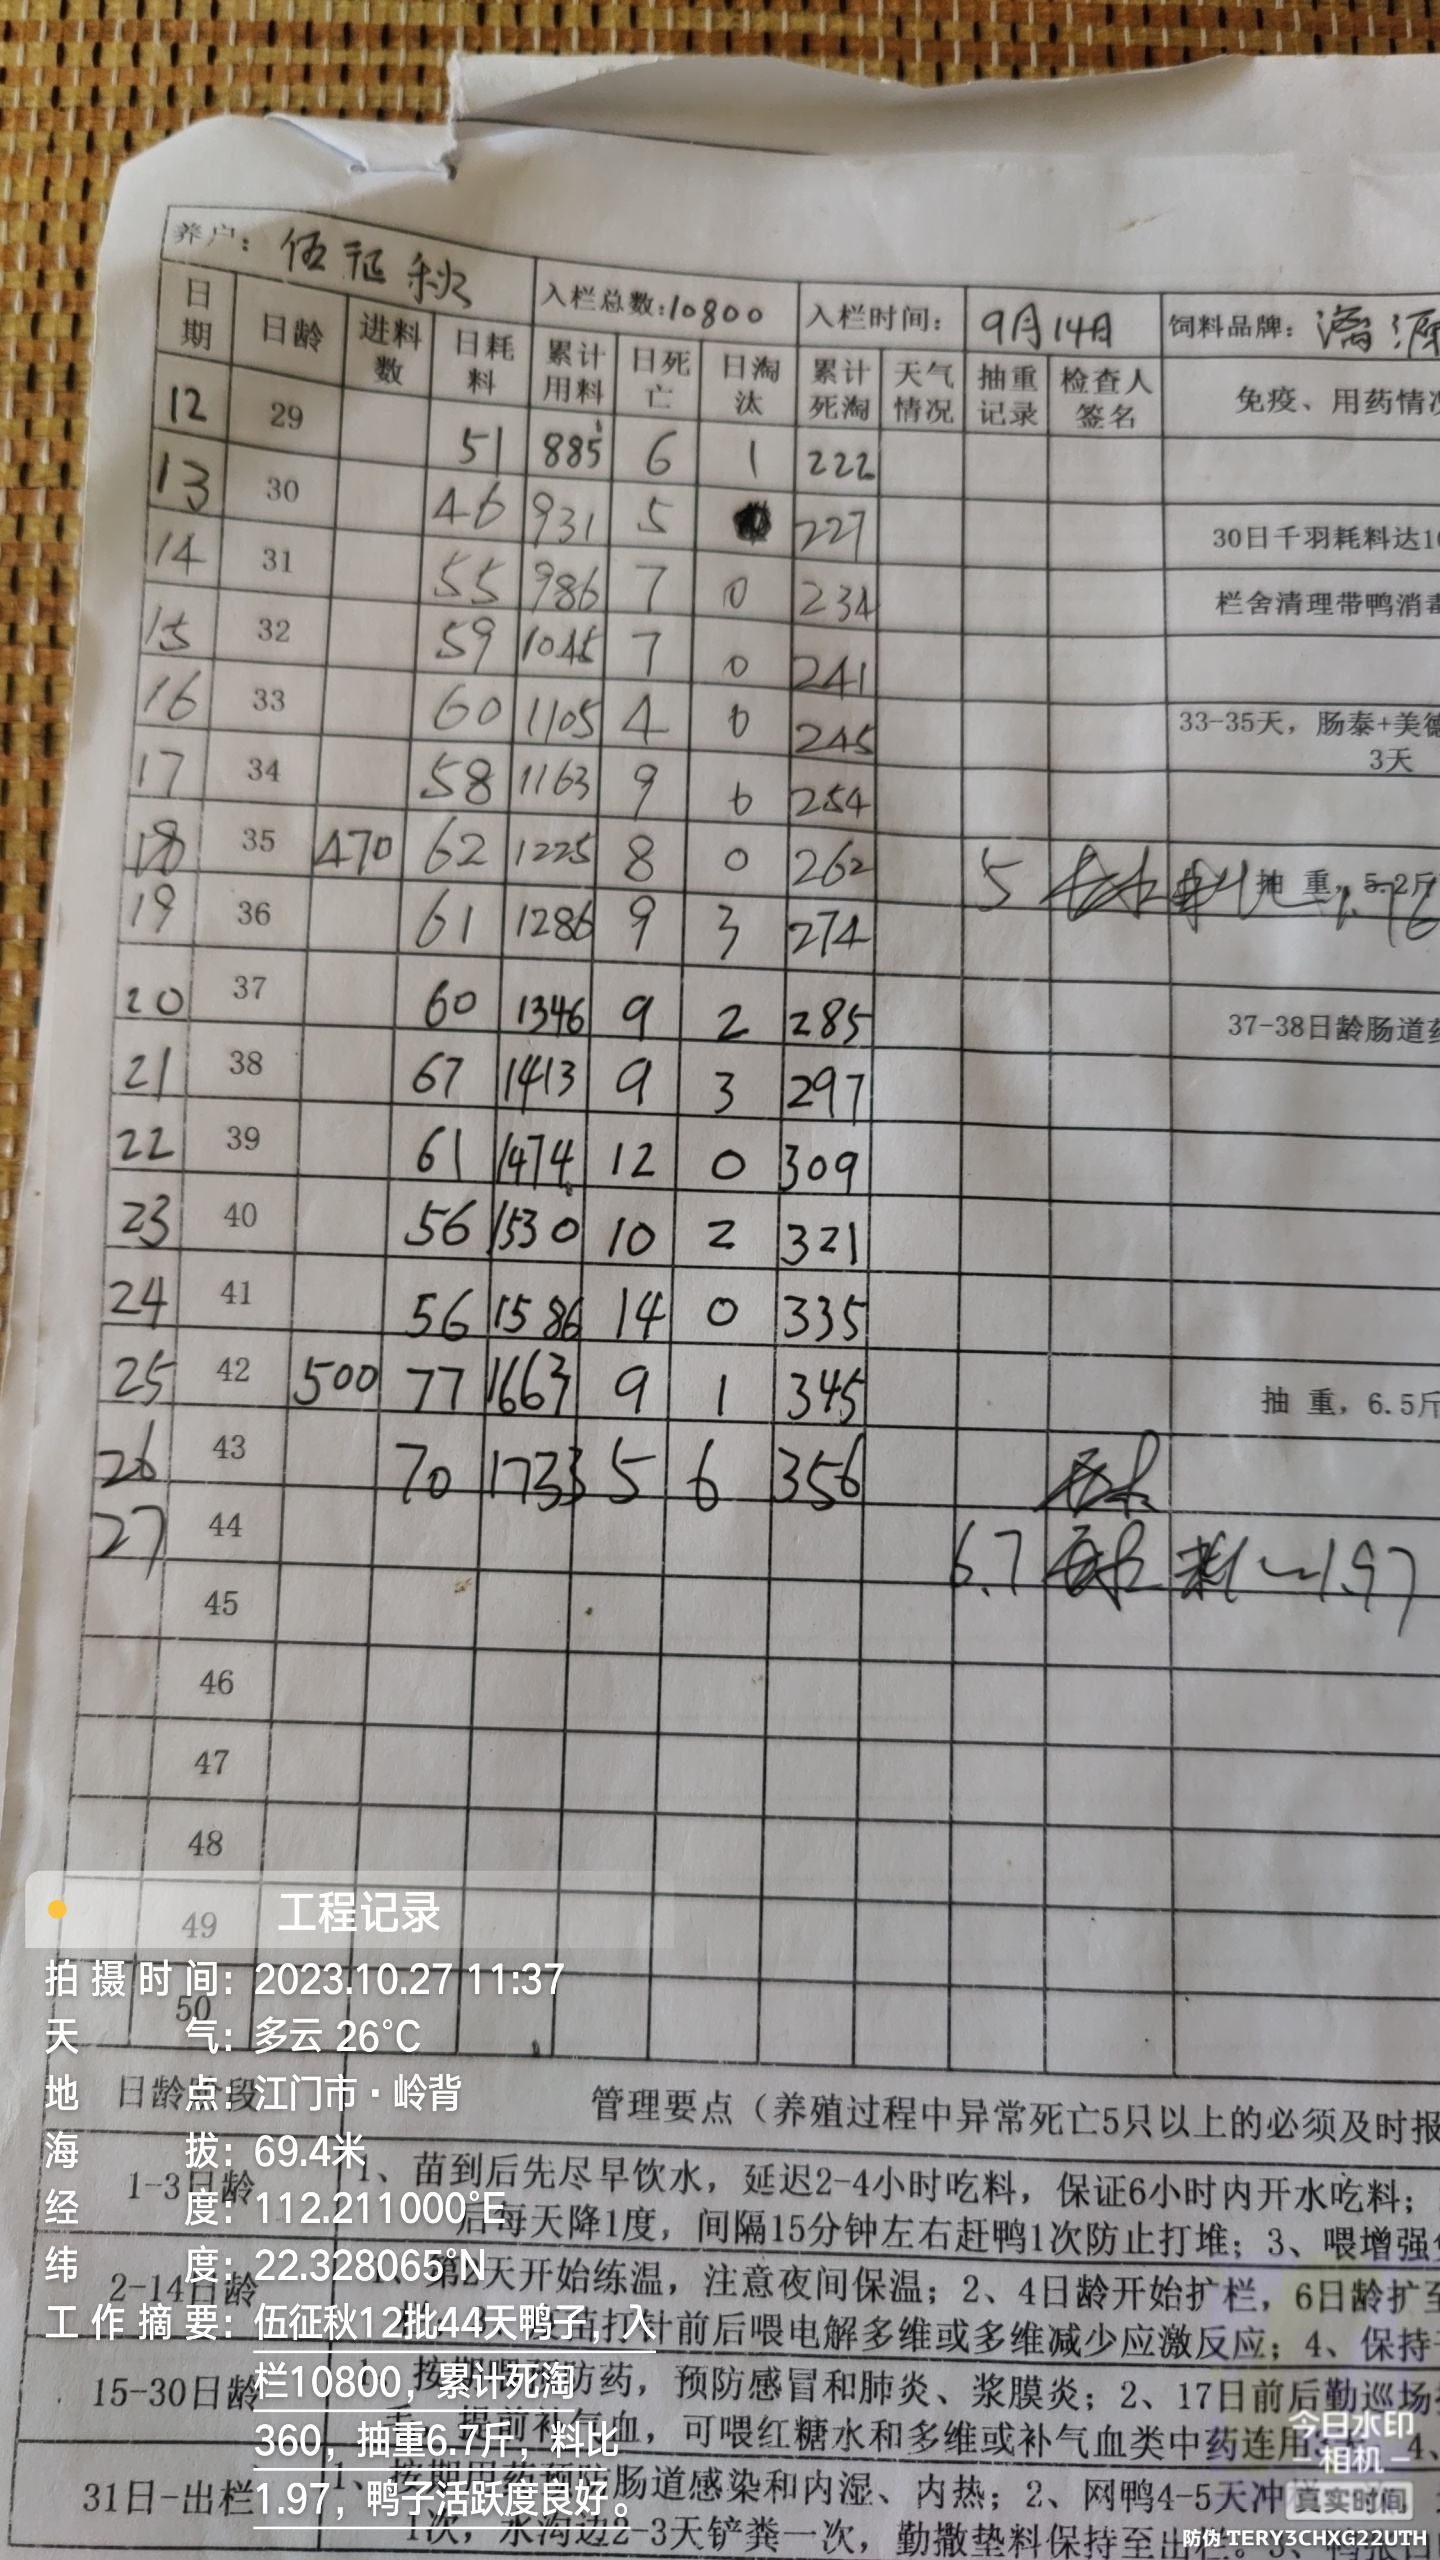 养户：伍征秋 入栏总数:10800 入栏时间： 9月14日 饲料品牌：漓源
日期 日龄 进料数 日耗料 累计用料 日死亡 日淘汰 累计死淘 天气情况 抽重记录 检查人签名 免疫、用药情况
12 29 51 885 6 1 222
13 30 46 931 5 227 30日千羽耗料达1
14 31 55 986 7 0 234 栏舍清理带鸭消毒
15 32 59 1045 7 0 241
16 33 60 1105 4 0 245 33-35天，肠泰+美德
3天
17 34 58 1163 9 0 254
18 35 470 62 1225 8 0 262 5 抽 重，5.2斤
19 36 61 1286 9 3 274
20 37 60 1346 9 2 285 37-38日龄肠道药
21 38 67 1413 9 3 297
22 39 61 1474 12 0 309
23 40 56 1530 10 2 321
24 41 56 1586 14 0 335
25 42 500 77 1663 9 1 345 抽 重，6.5斤
26 43 70 1733 5 6 356
27 44 6.7 料比1.97
45
46
47
48
49
50
日龄阶段 管理要点（养殖过程中异常死亡5只以上的必须及时报
1-3日龄 1、苗到后先尽早饮水，延迟2-4小时吃料，保证6小时内开水吃料；
后每天降1度，间隔15分钟左右赶鸭1次防止打堆；3、喂增强
2-14日龄 1、第2天开始练温，注意夜间保温；2、4日龄开始扩栏，6日龄扩至
打针前后喂电解多维或多维减少应激反应；4、保持
15-30日龄 1、按期喂预防药，预防感冒和肺炎、浆膜炎；2、17日前后勤巡场
提前补气血，可喂红糖水和多维或补气血类中药连用 4、
31日-出栏 1、按期用药预防肠道感染和内湿、内热；2、网鸭4-5天冲
1次，水沟边2-3天铲粪一次，勤撒垫料保持至出栏。3、
工程记录
拍摄时间：2023.10.27 11:37
天气：多云 26°C
地点：江门市·岭背
海拔：69.4米
经度：112.211000°E
纬度：22.328065°N
工作摘要：伍征秋12批44天鸭子，入
栏10800，累计死淘
360，抽重6.7斤，料比
1.97，鸭子活跃度良好。
今日水印
相机
真实时间
防伪 TERY3CHXG22UTH